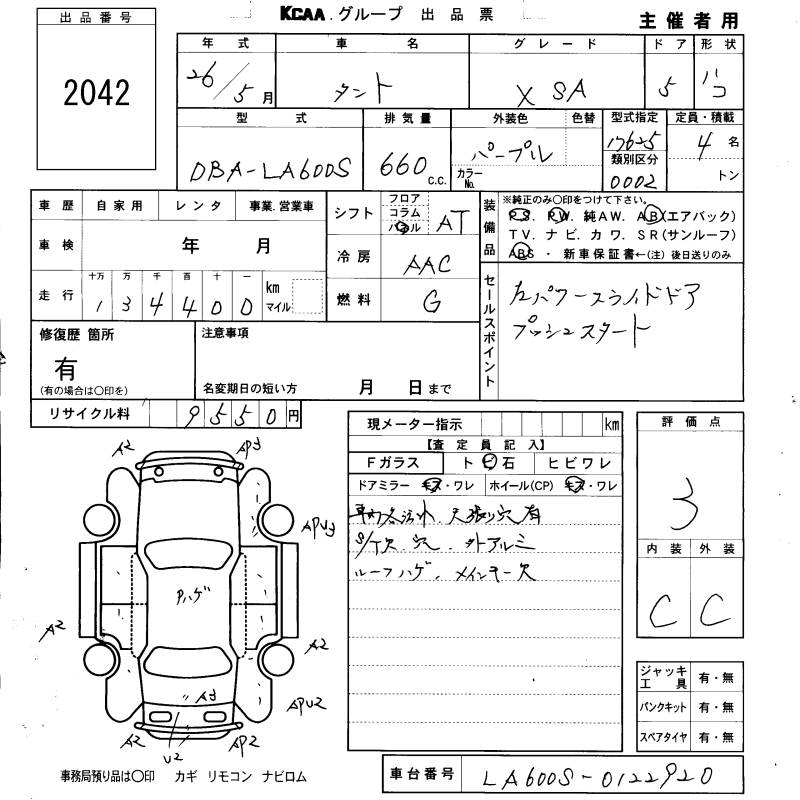 KCAA.グループ 出品票
主催者用
出品番号
2042
年式 車名 グレード ドア 形状
26/5月 タント X SA 5 ハコ
型式 排気量 外装色 色替 型式指定 定員・積載
DBA-LA600S 660 C.C. パープル カラーNo. 17625 4名
類別区分
0002 トン
車歴 自家用 レンタ 事業.営業車
車検 年 月
走行 十万 万 千 百 十 一 km マイル
1 3 4 4 0 0
シフト フロア コラム パネル AT
冷房 AAC
燃料 G
装備品 ※純正のみ○印をつけて下さい。
PS. PW. 純AW. AB(エアバック)
TV. ナビ. カワ. SR(サンルーフ)
ABS ・ 新車保証書←(注)後日送りのみ
セールスポイント
左パワースライドドア
プッシュスタート
修復歴 箇所
有
(有の場合は○印を)
注意事項
名変期日の短い方 月 日まで
リサイクル料 9 5 5 0 円
現メーター指示 km
【査定員記入】
Fガラス トビ石 ヒビワレ
ドアミラー キズ・ワレ ホイール(CP) キズ・ワレ
車内汚れ. 天張り穴有
S/T欠. 穴. 外アルミ
ルーフハゲ. メインキー欠
評価点
3
内装 外装
C C
ジャッキ工具 有・無
パンクキット 有・無
スペアタイヤ 有・無
A2 AP3
APU3
Pハゲ
A2 A2
A3 APU2
A2 U2 AP2
事務局預り品は○印 カギ リモコン ナビロム
車台番号 LA600S-0122920